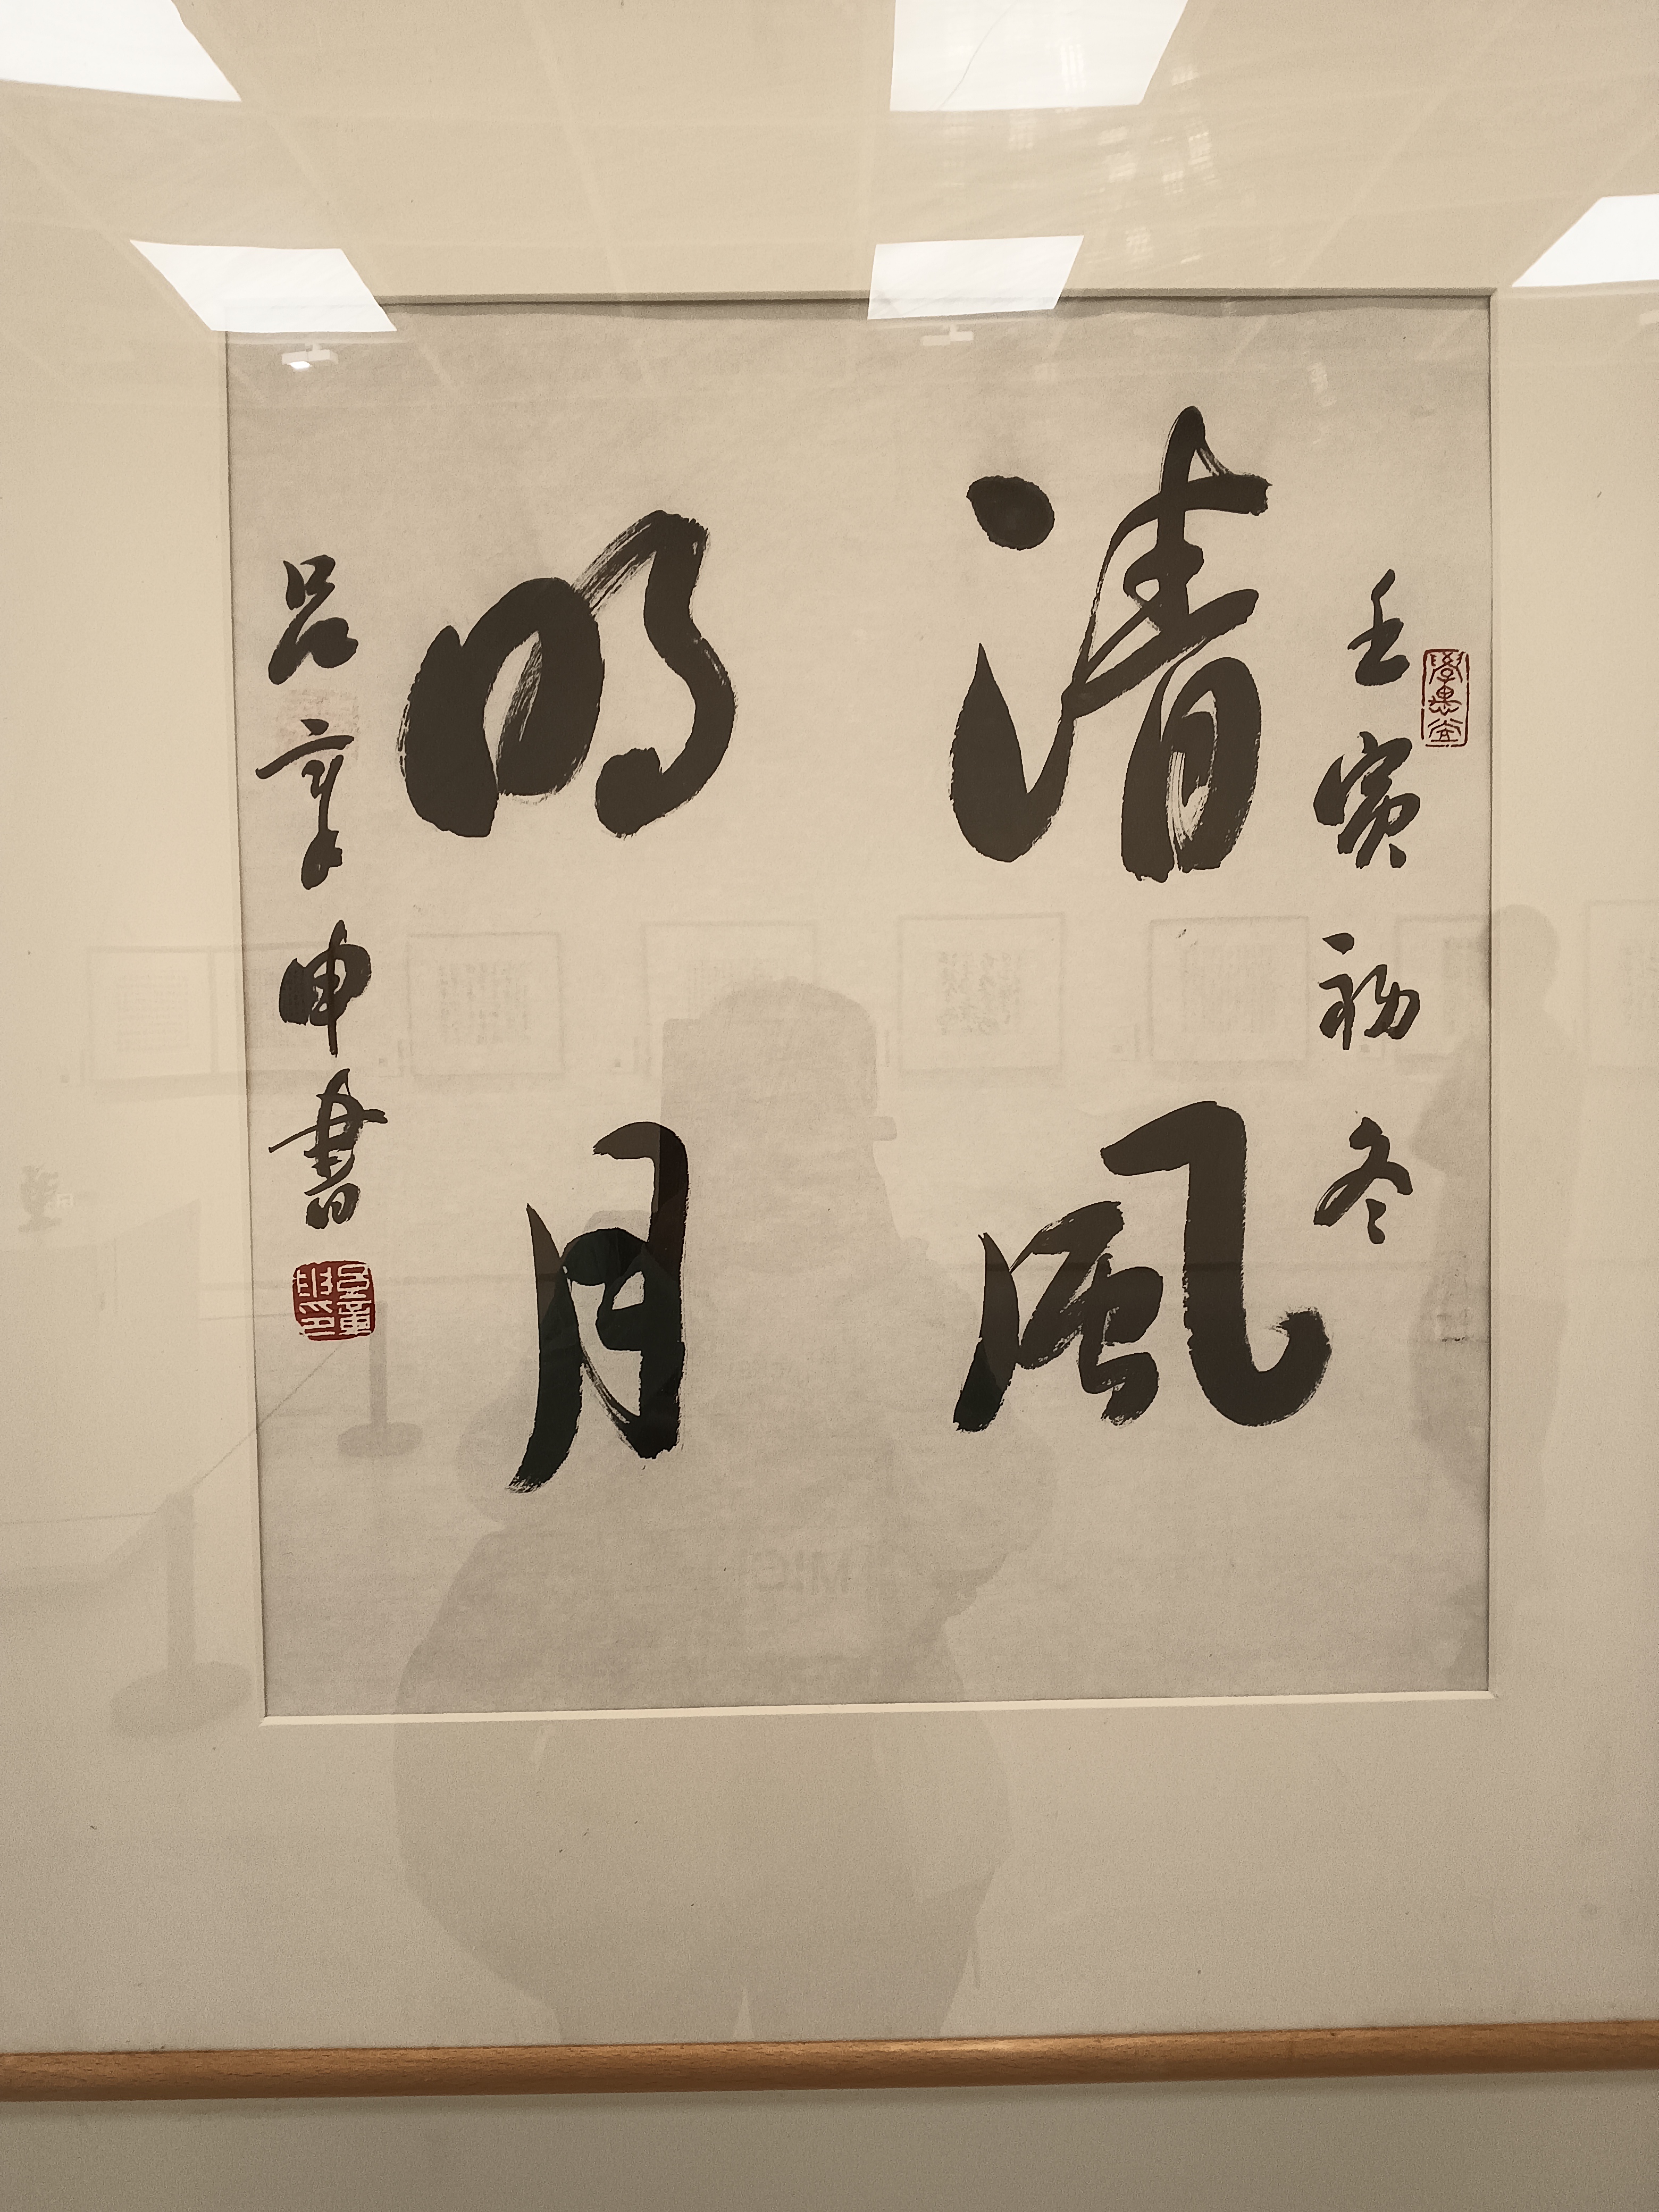 壬寅初冬
清風
明月
吕章申書